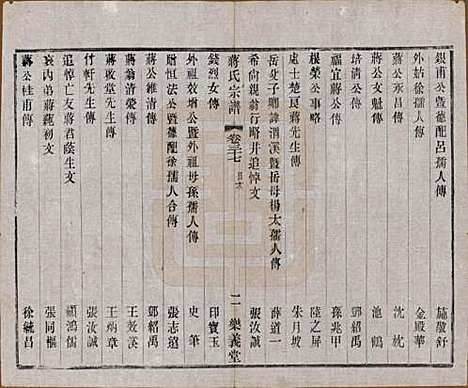 銀甫公暨德配呂孺人傳　施啟舒
外姑徐孺人傳　金殿華
蔣公永昌傳　沈枕
蔣公文魁傳　池鶴
培清公傳　鄧紹禹
福宜蔣公傳　孫兆甲
樸榮公事略　陸之屏
處士楚良蔣先生傳　朱月坡
岳父子卿諱渭溪暨岳母楊太孺人傳　薛道一
希向親翁行略并追悼文　張汝誠
蔣氏宗譜　卷之七　目次　二　樂義堂
錢烈女傳　印寶玉
外祖效增公暨外祖母孫孺人傳　史筆
贈恒法公暨德配徐孺人合傳　張志道
蔣公維清傳　鄧紹禹
蔣翁清榮傳　王效溪
蔣啟堂先生傳　王炳章
竹軒先生傳　張汝誠
追悼亡友蔣君蔭生文　顧鴻儒
哀內弟蔣蒓初文　張同樞
蔣公桂甫傳　徐毓昌